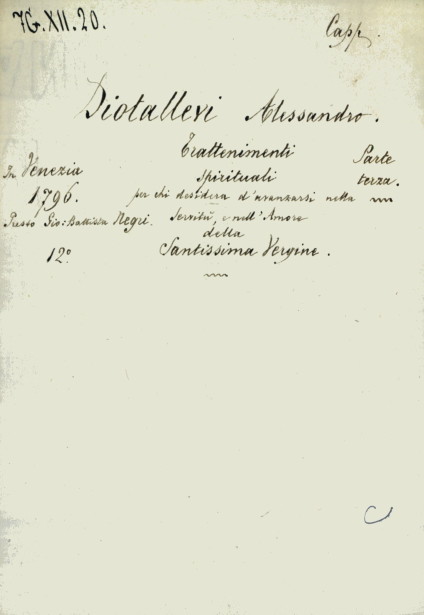 7G.XII.20.
Capp.
Diotallevi Alessandro.
Trattenimenti
Spirituali
per chi desidera d'avanzarsi nella
Servitù, e nell'Amore
della
Santissima Vergine.
Parte
terza.
In Venezia
1796.
Presso Gio: Battista Negri.
12°
C